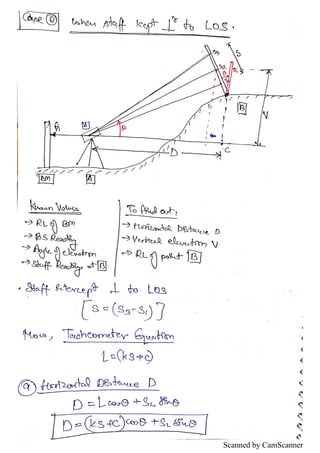 Case ⑥ when staff kept ⊥r to LOS.
S3
S2
S1
S
B
V
R
A
θ
D
C
BM
A
Known Values
→ RL of BM
→ BS Reading
→ Angle of elevation
→ Staff Reading at B
To find out,
→ Horizontal Distance D
→ Vertical elevation V
→ RL of point B
• Staff Intercept ⊥ to LOS
[S = (S3-S1)]
Now, Tacheometer Equation
L=(KS+C)
ⓐ Horizontal Distance D
D = L cosθ + S2 sinθ
D = (KS+C) cosθ + S2 sinθ
Scanned by CamScanner